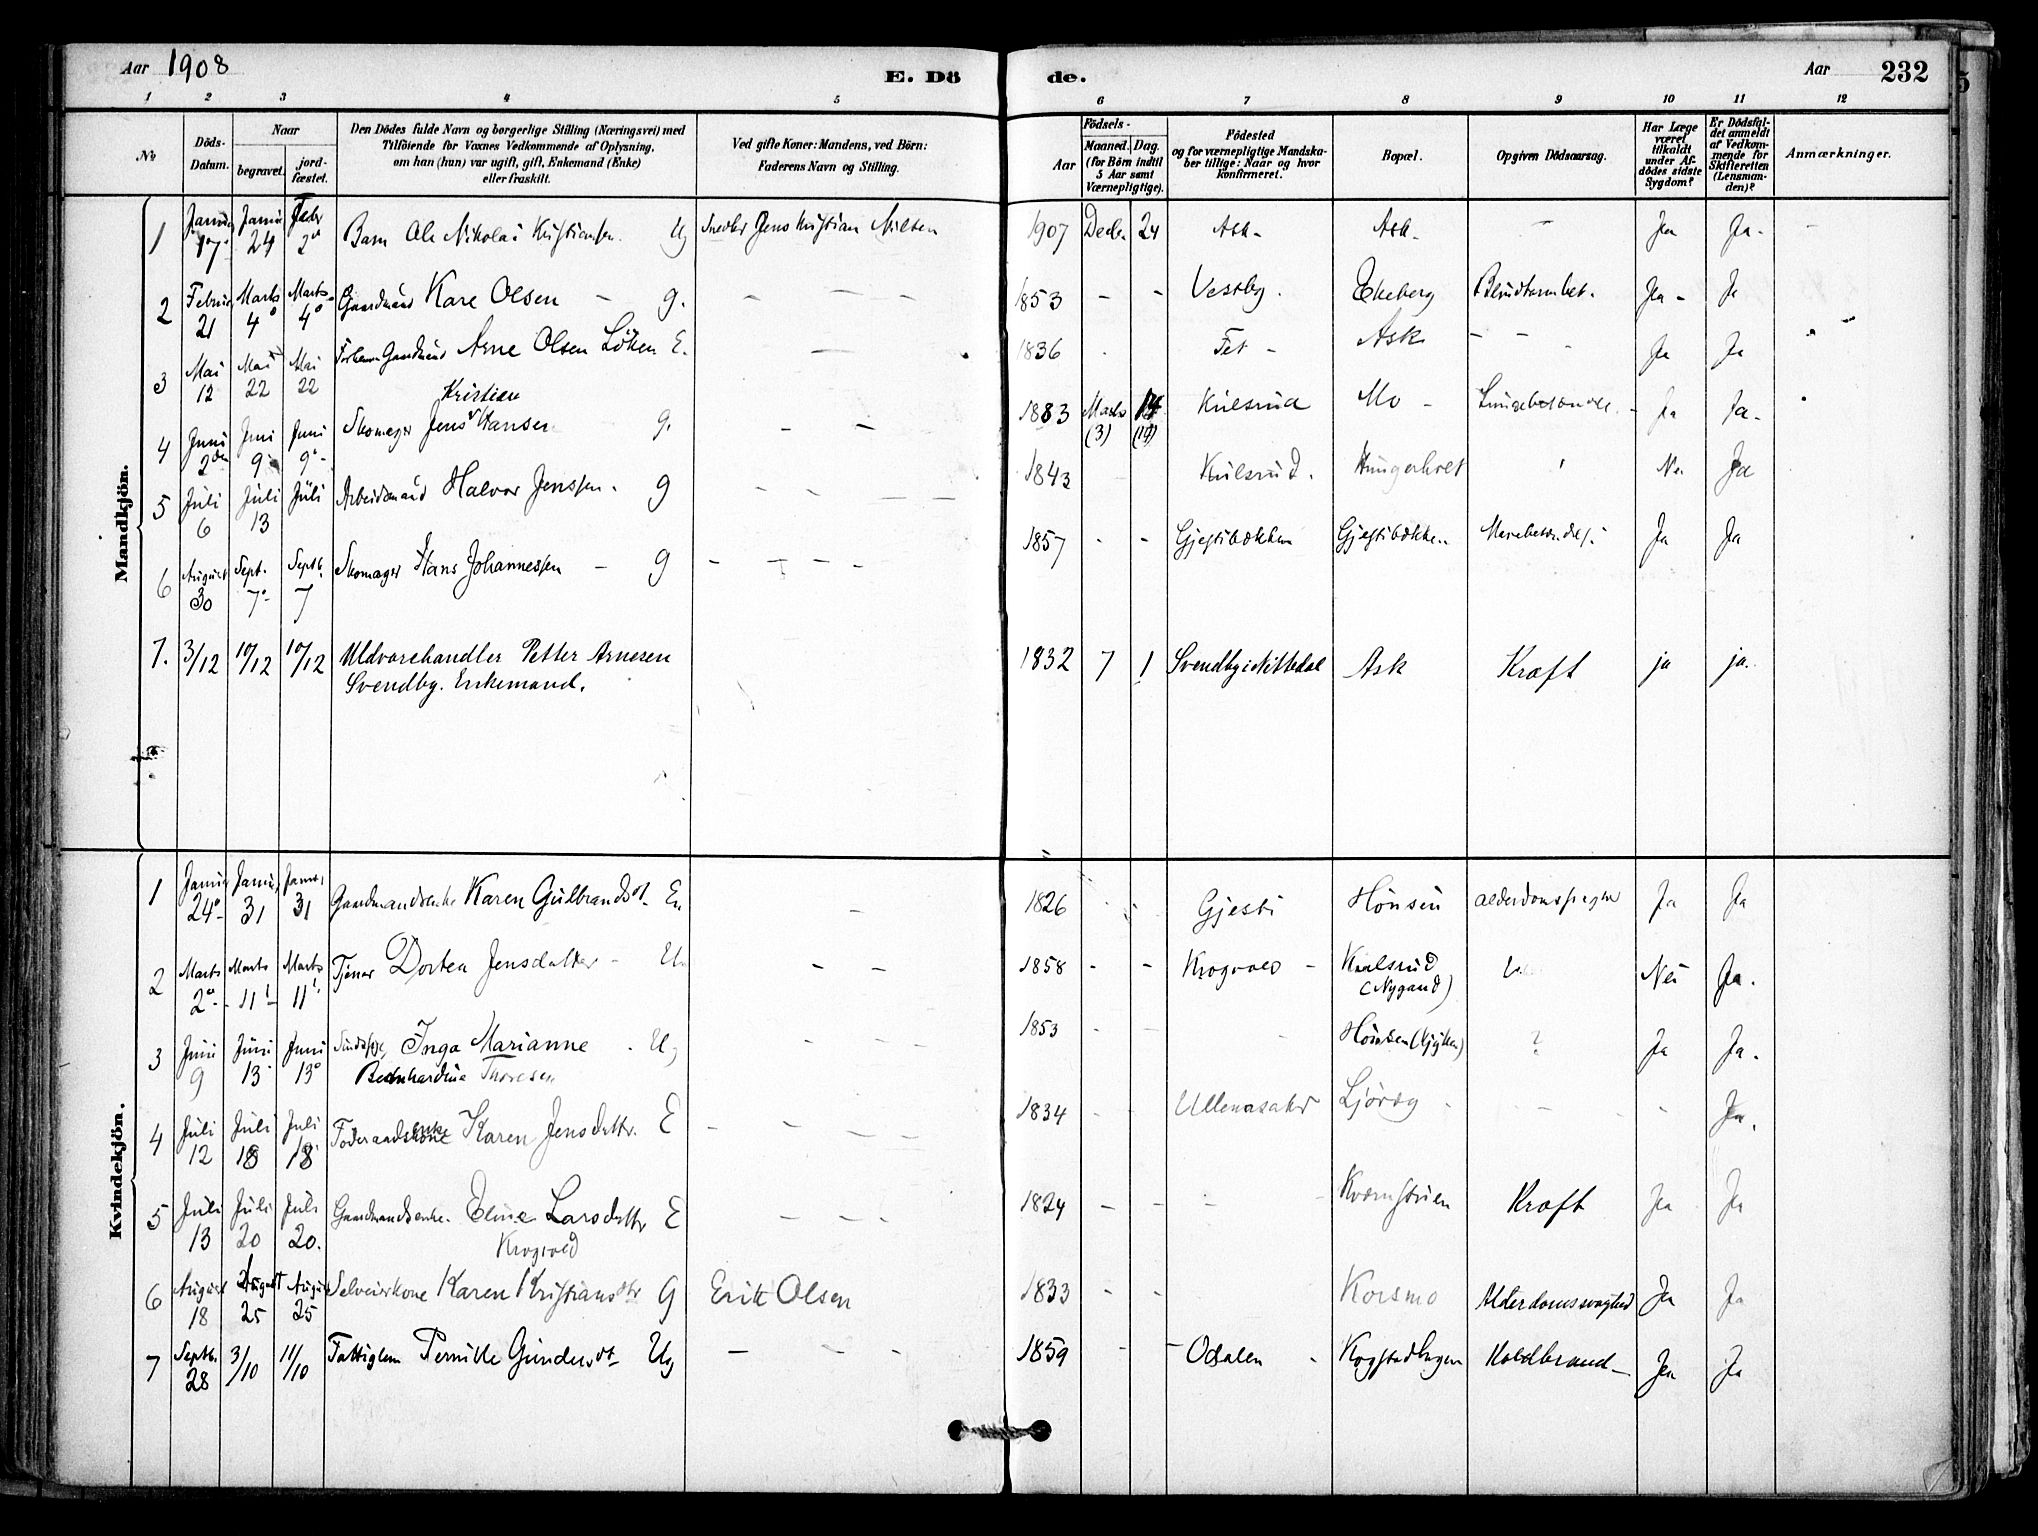 Aar 1908
E. Dö
de.
Aar
232
1 2 3 4 5 6 7 8 9 10 11 12
No
Döds-Datum.
Naar
begravet.
jord-fæstet.
Den Dödes fulde Navn og borgerlige Stilling (Næringsvei) med
Tilföiende for Voxnes Vedkommende af Oplysning,
om han (hun) var ugift, gift, Enkemand (Enke)
eller fraskilt.
Ved gifte Koner: Mandens, ved Börn:
Faderens Navn og Stilling.
Födsels-
Aar
Maaned. Dag.
(for Börn indtil
5 Aar samt
Værnepligtige).
Födested
og for værnepligtige Mandska-
ber tillige: Naar og hvor
konfirmeret.
Bopæl.
Opgiven Dödsaarsag.
Har Læge
været
tilkaldt
under Af-
dödes sidste
Sygdom?
Er Dödsfal-
det anmeldt
af Vedkom-
mende for
Skifteretten
(Lensman-
den)?
Anmærkninger.
Mandkjön.
1 Januar 17 Janu 24 Febr 2 Barn Ole Nikolai Kristiansen Ug Snedker Jens Kristian Nilsen 1907 Decbr 24 Ask - Ask - - Ja Ja - -
2 Februar 21 Marts 4 Marts 4 Gaardmand Kare Olsen - g. - - - 1853 - - Vestby. Ekeberg Blindtarmbet. Ja - Ja
3 Mai 12 Mai 22 Mai 22 Gaardmand Arne Olsen Löken E. - 1836 Fet - Ask - - Ja Ja
4 Juni 2den Juni 9 Juni 9 Skomager Jens Kristian Hansen g. - - 1883 Marts (3) 14 (14) Kulsrud Mo - Lungebetændel. - Ja Ja -
5 Juli 6 Juli 13 Juli Arbeidsmand Halvor Jenssen. g - - - - 1843 Kulsrud. Hungerholt Nei Ja
6 August 30 Sept. 7 Septb. 7 Skomager Hans Johannessen - g - - - - 1857 - - Gjestibækken Gjestibækken Ja Ja
7. 3/12 10/12 10/12 Uldvarehandler Petter Arnesen
Svendby. Enkemand. 1832 7 1 Svendby i Nittedal Ask Kræft ja ja.
Kvindekjön.
1 Januar 24 Januar 31 Januar 31 Gaardmandsenke Karen Gulbrandsdt. En - 1826 Gjesti Hönsen Ja Ja
2 Marts 2 Marts 11 Marts 11 Tjener Dortea Jensdatter - U - - 1858 - - Krogvold - Kulsrud (Nygaard) Nei Ja.
3 Juni 9 Juni 13 Juni 13 Inga Marianne Ug
Bernhardine Thoresen - - - 1853 - - Hönsen (Kjykken) ? Ja Ja.
4 Juli 12 Juli 18 Juli 18 Föderaadsenke Karen Jensdattr. E - - - - 1834 - - Ullensaker - - - Ja.
5 Juli 13 Juli 20 Juli 20. Gaardmandsenke. Eline Larsdattr E
Krogvold - - - 1824 - - - Kværnstuen Kræft Ja Ja
6 August 18 August 25 August 25 Selveierkone Karen Kristiansdtr G Erik Olsen 1833 - - Korsmo Alderdomssvaghed Ja Ja
7 Septb. 28 3/10 11/10 Fattiglem Pernille Gundersdt Ug - - - 1859 - - Odalen - Kogstadhagen Koldbrand - Ja Ja